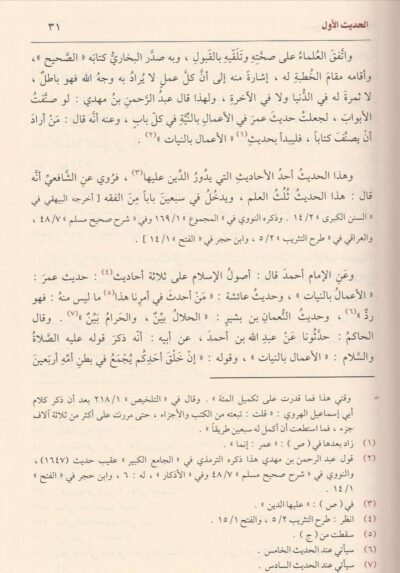 الحديث الأول
٣١
واتَّفقَ العُلماءُ على صحَّتِهِ وتَلَقِّيهِ بالقَبولِ ، وبه صدَّر البخاريُّ كتابَه « الصَّحيح » ،
وأقامَه مقامَ الخُطبةِ له ، إشارةً منه إلى أنَّ كلَّ عملٍ لا يُرادُ به وجهُ الله فهو باطلٌ ،
لا ثمرةَ له في الدُّنيا ولا في الآخرةِ ، ولهذا قال عبدُ الرَّحمنِ بنُ مهدي : لو صنَّفتُ
الأبوابَ ، لجعلتُ حديثَ عمرَ في الأعمالِ بالنِّيَّةِ في كلِّ بابٍ ، وعنه أنَّه قال : مَنْ أرادَ
أنْ يصنِّفَ كتاباً ، فليبدأ بحديثِ(١) « الأعمال بالنيات »(٢) .
وهذا الحديثُ أحدُ الأحاديثِ التي يدُورُ الدِّين عليها(٣) ، فرُوي عنِ الشَّافعيِّ أنَّه
قال : هذا الحديثُ ثُلُثُ العلمِ ، ويدخُلُ في سبعينَ باباً مِنَ الفقه [ أخرجه البيهقي في
« السنن الكبرى » ١٤/٢ . وذكره النووي في « المجموع » ١٦٩/١ وفي « شرح صحيح مسلم » ٤٨/٧ ،
والعراقي في « طرح التثريب » ٥/٢ ، وابن حجر في « الفتح » ١٤/١ ] .
وعَنِ الإمام أحمدَ قال : أصولُ الإسلام على ثلاثة أحاديث(٤) : حديث عمرَ :
« الأعمالُ بالنيات » ، وحديثُ عائشة : « مَنْ أحدثَ في أمرِنا هذا(٥) ما ليس منهُ : فهو
ردٌّ »(٦) ، وحديثُ النُّعمانِ بنِ بشيرٍ : « الحلالُ بيِّنٌ ، والحَرامُ بَيِّنٌ »(٧) . وقال
الحاكمُ : حدَّثُونا عَنْ عبدِ الله بنِ أحمدَ ، عن أبيه : أنَّه ذكرَ قوله عليه الصَّلاةُ
والسَّلام : « الأعمال بالنيات » ، وقوله : « إنَّ خَلْقَ أحَدِكُم يُجْمَعُ في بطنِ أمِّهِ أربَعينَ
= وقتي هذا فما قدرت على تكميل المئة » . وقال في « التلخيص » ٢١٨/١ بعد أن ذكر كلام
أبي إسماعيل الهروي : « قلت : تبعته من الكتب والأجزاء ، حتى مررت على أكثر من ثلاثة آلاف
جزء ، فما استطعت أن أكمل له سبعين طريقاً » .
(١) زاد بعدها في ( ص ) : « عمر : إنما » .
(٢) قول عبد الرحمن بن مهدي هذا ذكره الترمذي في « الجامع الكبير » عقيب حديث (١٦٤٧) ،
والنووي في « شرح صحيح مسلم » ٤٨/٧ وفي « الأذكار » ، له : ٦ ، وابن حجر في « الفتح »
١٤/١ .
(٣) في ( ص ) : « عليها الدين » .
(٤) انظر : طرح التثريب ٥/٢ ، والفتح ١٥/١ .
(٥) سقطت من ( ج ) .
(٦) سيأتي عند الحديث الخامس .
(٧) سيأتي عند الحديث السادس .